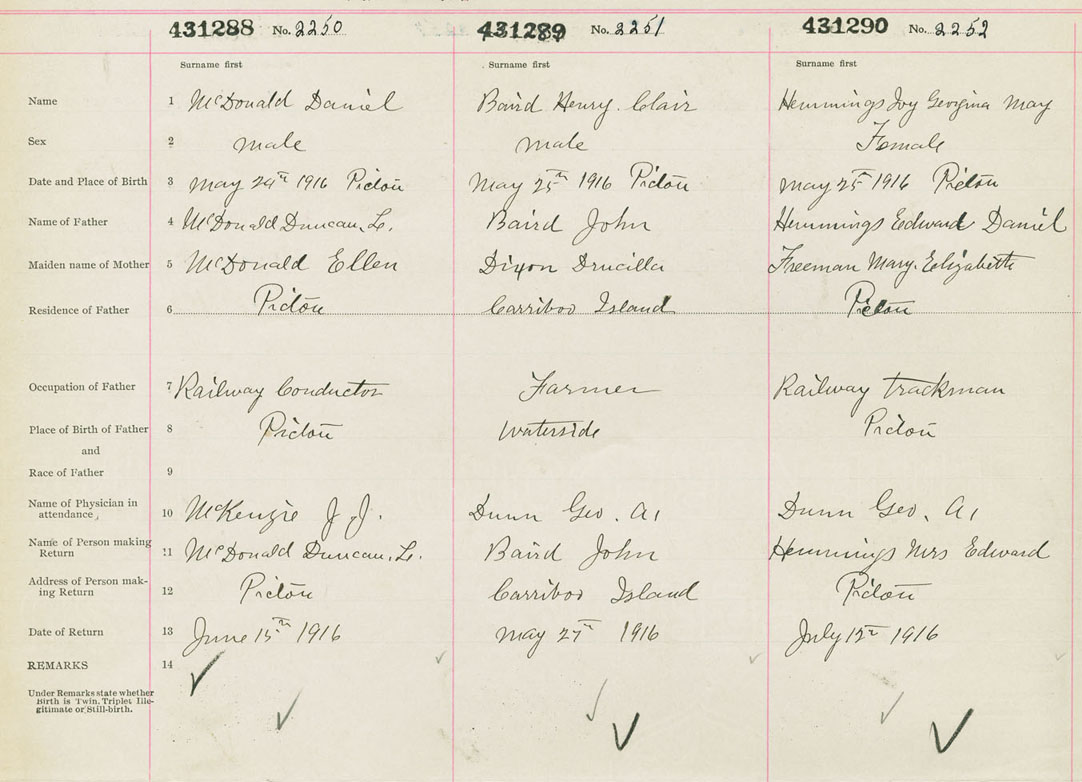 431288 No. 2250 431289 No. 2251 431290 No. 2252
Surname first Surname first Surname first
Name 1 McDonald Daniel Baird Henry. Clair Hemmings Ivy Georgina May
Sex 2 male male Female
Date and Place of Birth 3 May 24th 1916 Pictou May 25th 1916 Pictou May 25th 1916 Pictou
Name of Father 4 McDonald Duncan, L. Baird John Hemmings Edward Daniel
Maiden name of Mother 5 McDonald Ellen Dixon Drucilla Freeman Mary. Elizabeth
Residence of Father 6 Pictou Carriboo Island Pictou
Occupation of Father 7 Railway Conductor Farmer Railway trackman
Place of Birth of Father 8 Pictou Waterside Pictou
and
Race of Father 9
Name of Physician in
attendance, 10 McKenzie J. J. Dunn Geo. A. Dunn Geo. A.
Name of Person making
Return 11 McDonald Duncan, L. Baird John Hemmings Mrs Edward
Address of Person mak-
ing Return 12 Pictou Carriboo Island Pictou
Date of Return 13 June 15th 1916 May 27th 1916 July 12th 1916
REMARKS 14
Under Remarks state whether
Birth is Twin, Triplet Ille-
gitimate or Still-birth.